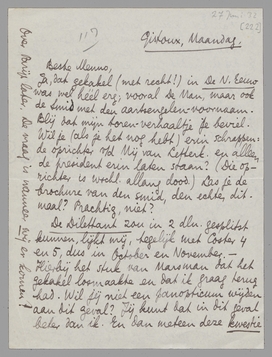 27 Juni 32
[225]
117
Gistoux, Maandag.
Beste Menno,
Ja, dat gekakel (met recht!) in De N. Eeuw
was wel heel erg; vooral De Man, maar ook
de Smid met den aartsengelen-voornaam.
Blij dat mijn toren-verhaaltje je beviel.
Wil je (als je 't nog hebt) erin schrappen:
de oprichter der Mij van Letterk. en alleen
de president erin laten staan? (Die op-
richter is wschl. allang dood.) Las je de
brochure van den smid, den echten, dit-
maal? Prachtig, niet?
De Dilettant zou in 2 dln. gesplitst
kunnen, lijkt mij, tegelijk met Coster 4
en 5, dus in October en November. —
Hierbij het stuk van Marsman dat het
gekakel losmaakte en dat ik graag terug
had. Wil jij niet een panopticum wijden
aan dit geval? Jij kunt dat in dit geval
beter dan ik. En dan meteen deze kwestie
Over Parijs later. De vraag is wanneer wij er komen!